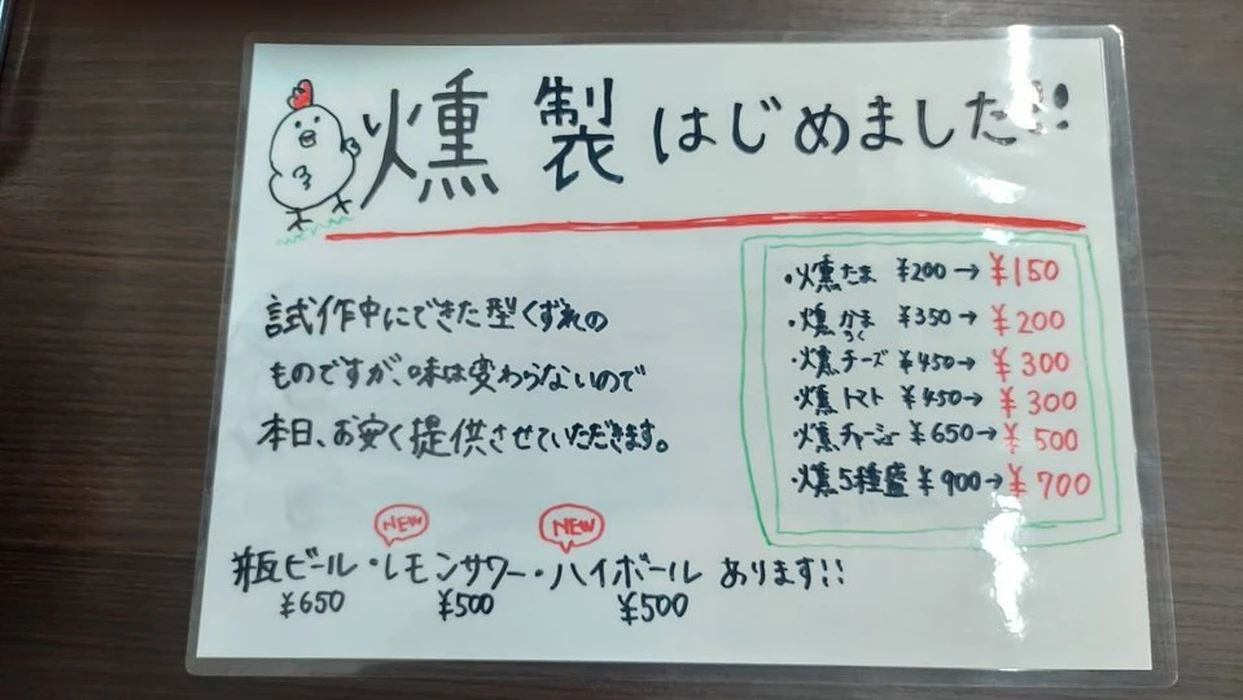 燻製はじめました!!
試作中にできた型くずれの
ものですが、味は変わらないので
本日、お安く提供させていただきます。
・燻たま ¥200→¥150
・燻かまつく ¥350→¥200
・燻チーズ ¥450→¥300
・燻トマト ¥450→¥300
・燻チャーシュー ¥650→¥500
・燻5種盛 ¥900→¥700
NEW NEW
瓶ビール・レモンサワー・ハイボール あります!!
¥650 ¥500 ¥500